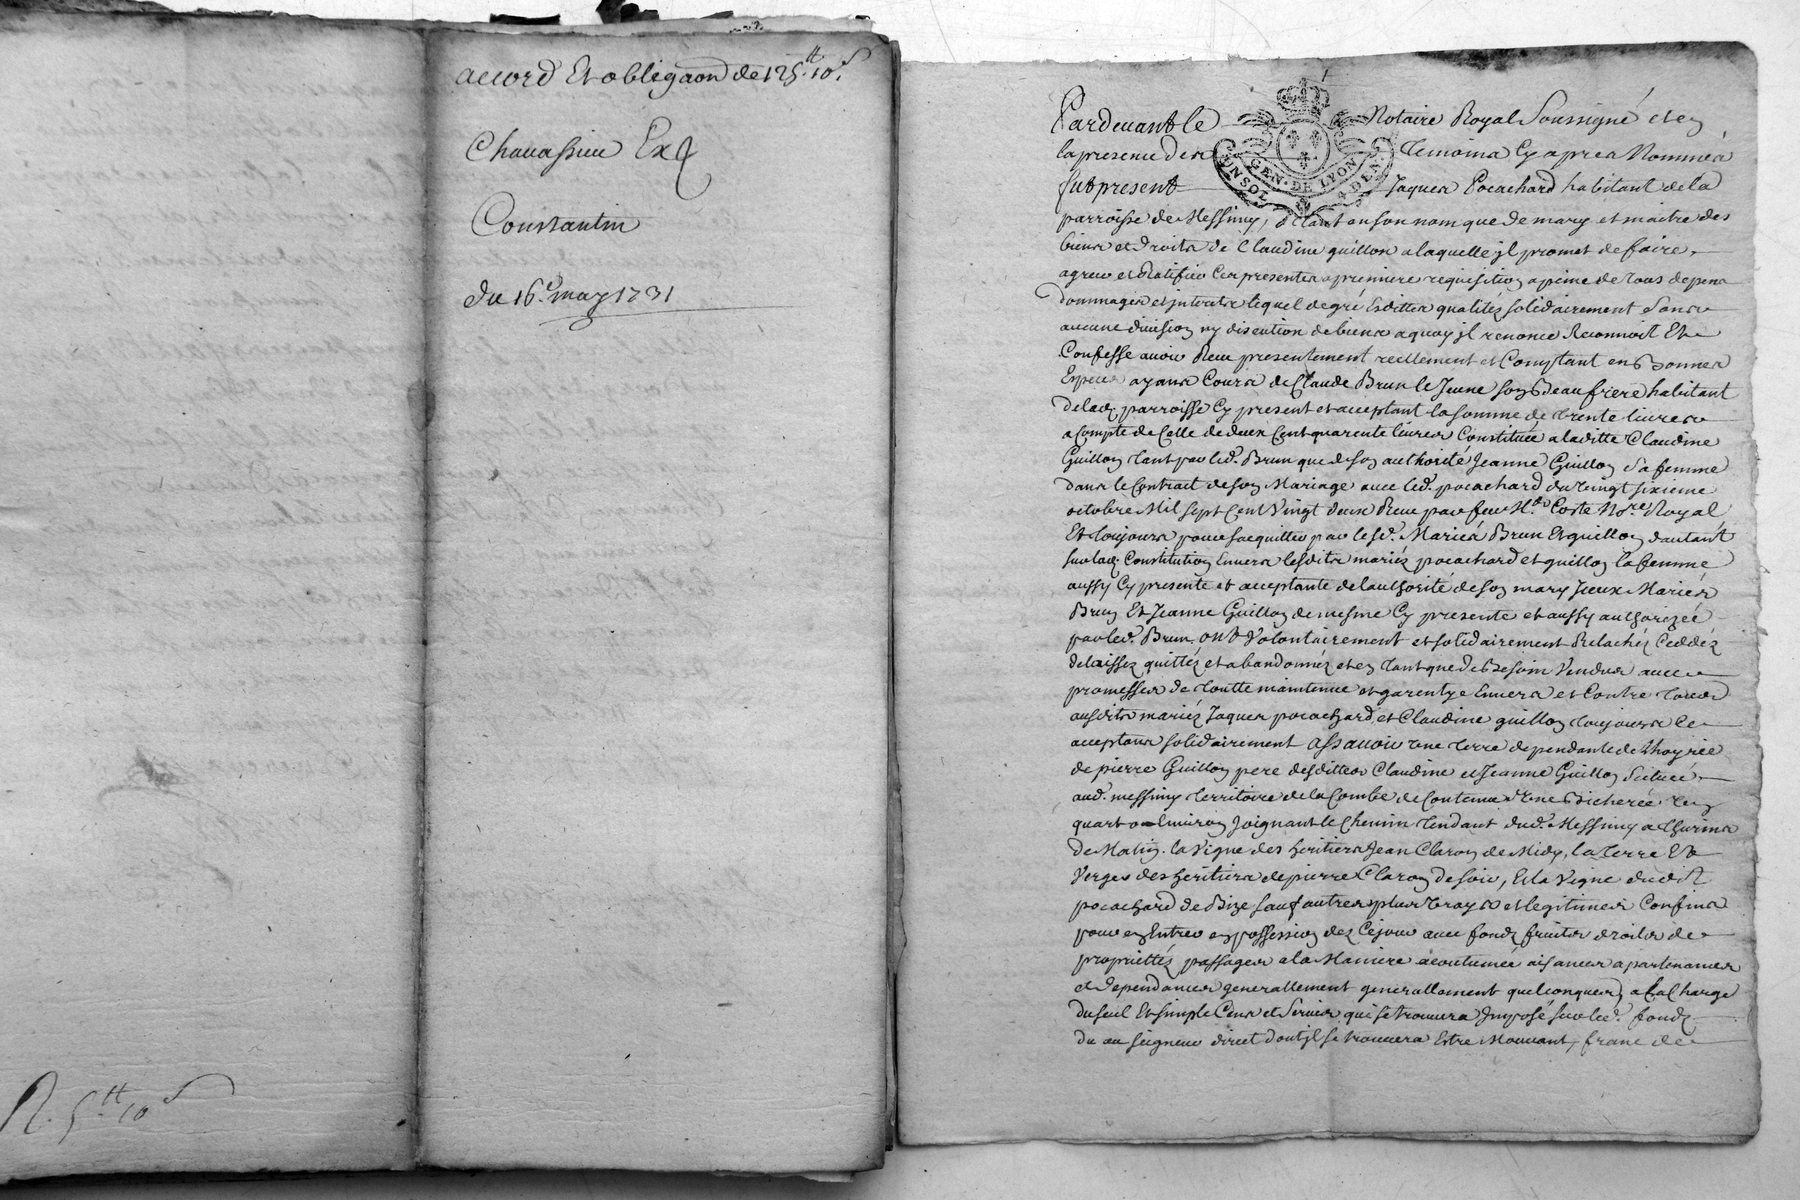 accord Et obligãon de 125.tt 10.s
Chavassieu Ex
Constantin
du 16.e may 1731
R. 5.tt 10 s
Pardevant le Notaire Royal Soussigné et en
la presence des Temoins Cy apres Nommés
fut present Jaques Pocachard habitant de la
parroisse de Messimy, tant en son nom que de mary et maitre des
biens et droits de Claudine guillon a laquelle jl promet de faire
agreer et Ratifier Ces presentes a premiere requisition a peine de tous depens
dommages et jnterets lequel de gré Esdittes qualités solidairement Sans
aucune division ny discution de biens a quoy jl renonce Reconnoit Et
Confesse avoir Receu presentement reellement et Comptant en Bonnes
Especes ayans Cours de Claude Brun le Jeune son Beaufrere habitant
de lad. parroisse Cy present et acceptant la somme de trente livres
a Compte de Celle de deux Cent quarente livres Constituée a laditte Claudine
Guillon tant par led. Brun que de son authorité Jeanne Guillon Sa femme
dans le Contrait de son Mariage avec led. pocachard du vingt sixieme
octobre Mil sept Cent Vingt deux Receu par feu M.e Coste No.re Royal
Et toujours pour sacquitter par lesd. Mariés Brun Et guillon dautant
sur lad. Constitution Envers lesdits mariéz pocachard et guillon la femme
aussy Cy presente et acceptante de lauthorité de son mary Jceux Mariés
Brun Et Jeanne Guillon de mesme Cy presente et aussy authorizée
par led. Brun, ont Volontairement et solidairement Relachéz Ceddéz
delaissez quittéz et abandonnéz et en tant que de Besoin Vendus avec
promesses de toutte maintenue et garentye Envers et Contre tous
ausdits mariéz Jaques pocachard, et Claudine guillon toujours
acceptans solidairement assavoir une terre dependante de Lhoyrie
de pierre Guillon pere desdittes Claudine et Jeanne Guillon Scituée
aud. messimy territoire de la Combe de Contenue dune Bicherée un
quart ou environ Joignant le Chemin tendant dud. Messimy a Thurins
de Matin. la Vigne des heritiers Jean Claron de Midy, la terre Et
Verger des heritiers de pierre Claron de soir, Et la Vigne dudit
pocachard de Bize sauf autres plus vrays et legitimes Confins
pour en Entrer en possession dez Cejour avec fondz fruits droits de
propriettéz passages a la Maniere acoutumée aisances apartenances
et dependances generallement generallement quelconques, a la Charge
du seul Et simple Cens et Servis qui se trouvera Jmposé sur led. fondz
du au seigneur direct dont jl se trouvera Estre Mouvant, franc de
GEN. DE LYON